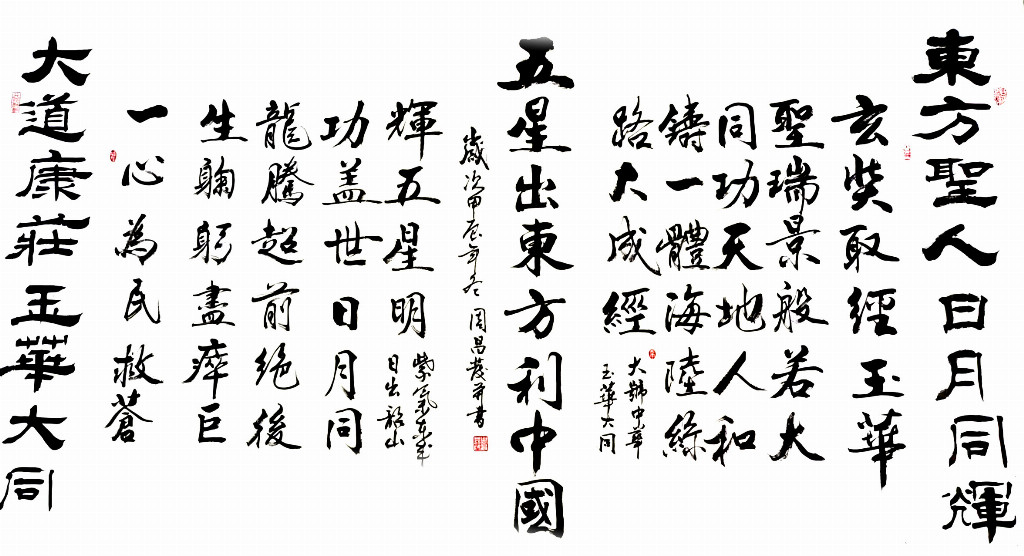 東方聖人日月同輝
玄奘取經玉華
聖瑞景般若火
同功天地人和
鑄一體海陸絲
路大成經
大韓中華
玉華大同
五星出東方利中國
大道康莊玉華大同
一心為民救蒼
生鞠躬盡瘁巨
龍騰超前绝後
功盖世日月同
輝五星明
日出韶山
紫氣東來
歲次甲辰年冬 周昌發并書